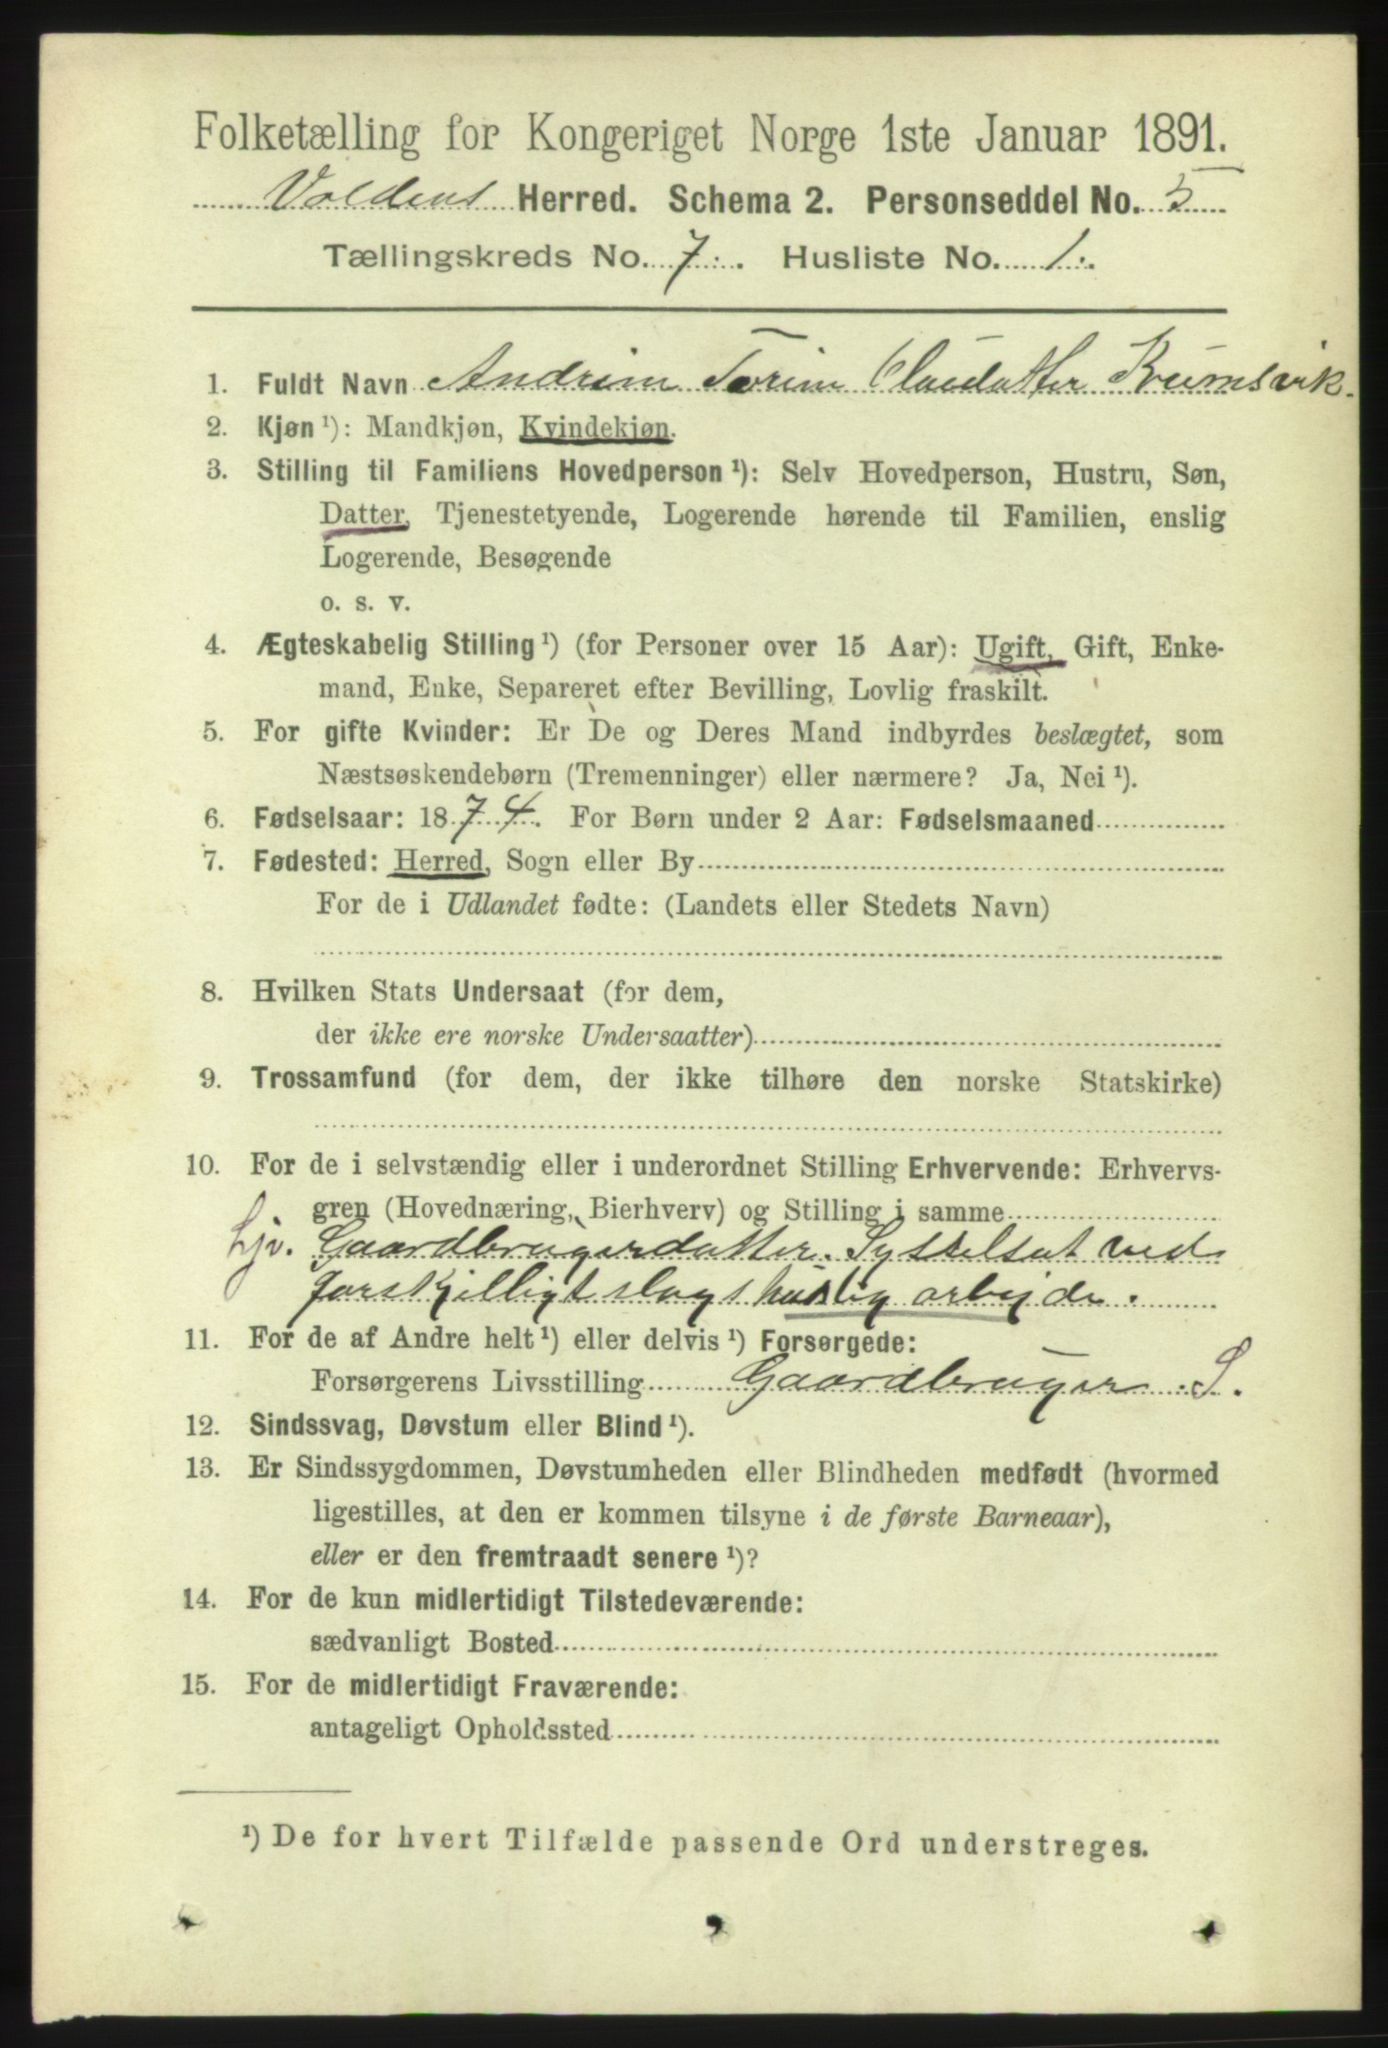 Folketælling for Kongeriget Norge 1ste Januar 1891.
Voldens Herred. Schema 2. Personseddel No. 5
Tællingskreds No. 7. Husliste No. 1.
1. Fuldt Navn Andrine Torine Claudatter
2. Kjøn ¹): Mandkjøn, Kvindekjøn.
3. Stilling til Familiens Hovedperson ¹): Selv Hovedperson, Hustru, Søn,
Datter, Tjenestetyende, Logerende hørende til Familien, enslig
Logerende, Besøgende
o. s. v.
4. Ægteskabelig Stilling ¹) (for Personer over 15 Aar): Ugift, Gift, Enke-
mand, Enke, Separeret efter Bevilling, Lovlig fraskilt.
5. For gifte Kvinder: Er De og Deres Mand indbyrdes beslægtet, som
Næstsøskendebørn (Tremenninger) eller nærmere? Ja, Nei ¹).
6. Fødselsaar: 1874. For Børn under 2 Aar: Fødselsmaaned
7. Fødested: Herred, Sogn eller By
For de i Udlandet fødte: (Landets eller Stedets Navn)
8. Hvilken Stats Undersaat (for dem,
der ikke ere norske Undersaatter)
9. Trossamfund (for dem, der ikke tilhøre den norske Statskirke)
10. For de i selvstændig eller i underordnet Stilling Erhvervende: Erhvervs-
gren (Hovednæring, Bierhverv) og Stilling i samme
hjv. Gaardbrugerdatter. Sysselsat ved
forskjelligt slags huslig arbejde.
11. For de af Andre helt ¹) eller delvis ¹) Forsørgede:
Forsørgerens Livsstilling Gaardbruger S.
12. Sindssvag, Døvstum eller Blind ¹).
13. Er Sindssygdommen, Døvstumheden eller Blindheden medfødt (hvormed
ligestilles, at den er kommen tilsyne i de første Barneaar),
eller er den fremtraadt senere ¹)?
14. For de kun midlertidigt Tilstedeværende:
sædvanligt Bosted
15. For de midlertidigt Fraværende:
antageligt Opholdssted
¹) De for hvert Tilfælde passende Ord understreges.